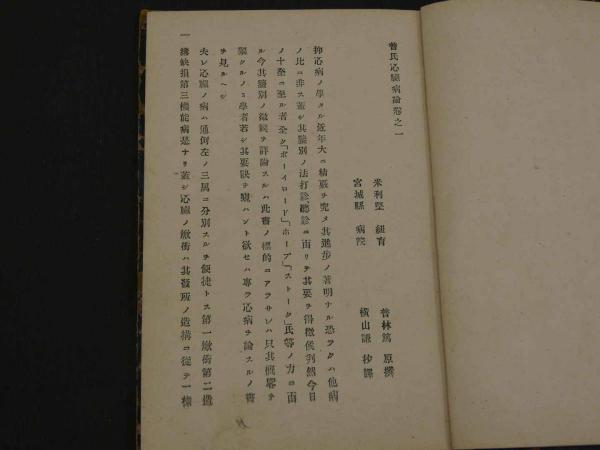 普氏心臓病論卷之一
米利堅 紐育 普林篤 原撰
宮城縣 病院 横山謙 抄譯
抑心病ノ學タル近年大ニ精覈ヲ究メ其進歩ノ著明ナル恐ラクハ他病
ノ比ニ非ス蓋シ其鑑別ノ法打診聽診ニ由リテ其要ヲ得徴候判然今日
ノ十全ニ至ル者全ク「ボーイロード」「ホープ」「ストーク」氏等ノ力ニ由
ル今其鑑別ノ徴候ヲ評論スルハ此書ノ標的ニアラサレハ只其概略ヲ
擧クルノミ學者若シ其要訣ヲ窺ハント欲セハ專ラ心病ヲ論スルノ書
ヲ見ルヘシ
夫レ心臓ノ病ハ通例左ノ三屬ニ分別スルヲ便捷トス第一焮衝第二造
構缺損第三機能病是ナリ蓋シ心臓ノ焮衝ハ其發所ノ造構ニ從テ一樣
一